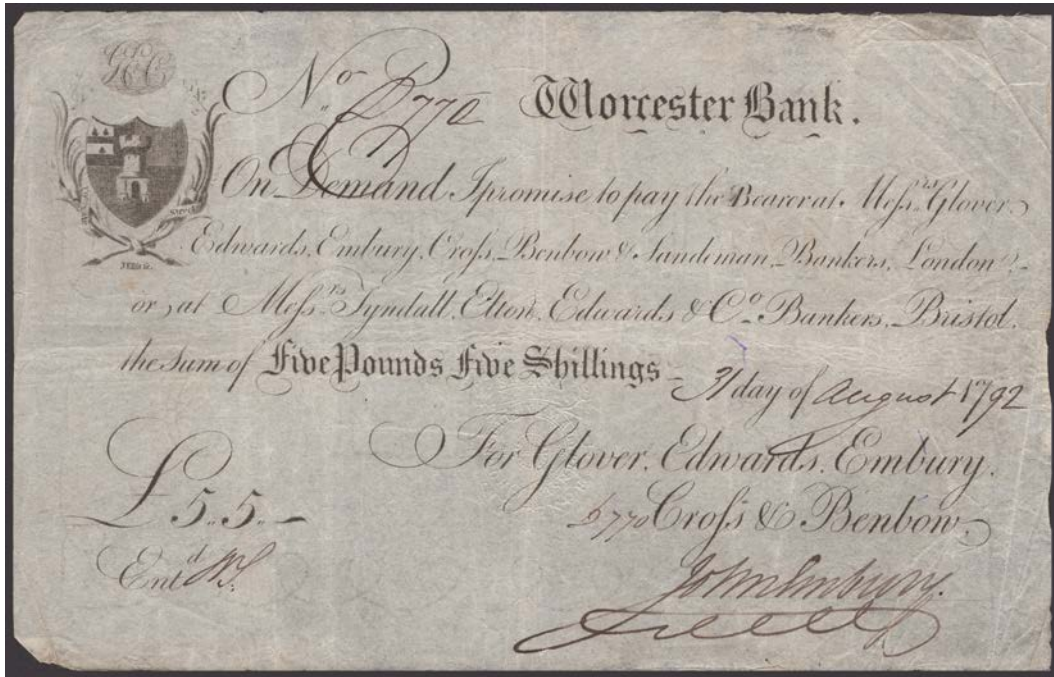 No. B770 Worcester Bank.
On Demand I promise to pay the Bearer at Messrs. Glover,
Edwards, Embury, Cross, Benbow & Sandeman, Bankers, London,
or, at Messrs. Tyndall, Elton, Edwards & Co. Bankers, Bristol,
the Sum of Five Pounds Five Shillings 31 day of August 1792
For Glover, Edwards, Embury,
£5,,5,,
B770 Cross & Benbow
Entd. WS
John Embury.